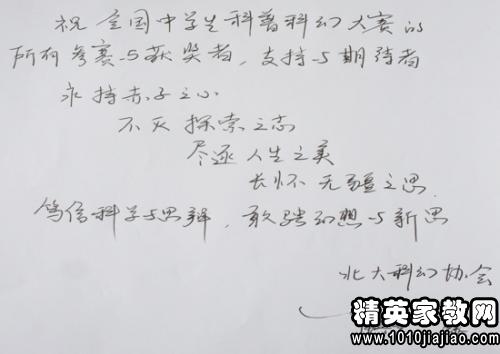 祝全国中学生科普科幻大赛的
所有参赛与获奖者，支持与期待者
永持赤子之心
不灭探索之志
尽逐人生之美
长怀无疆之思
笃信科学与思辩，敢骋幻想与新思
北大科幻协会
精英家教网
www.1010jiajiao.com